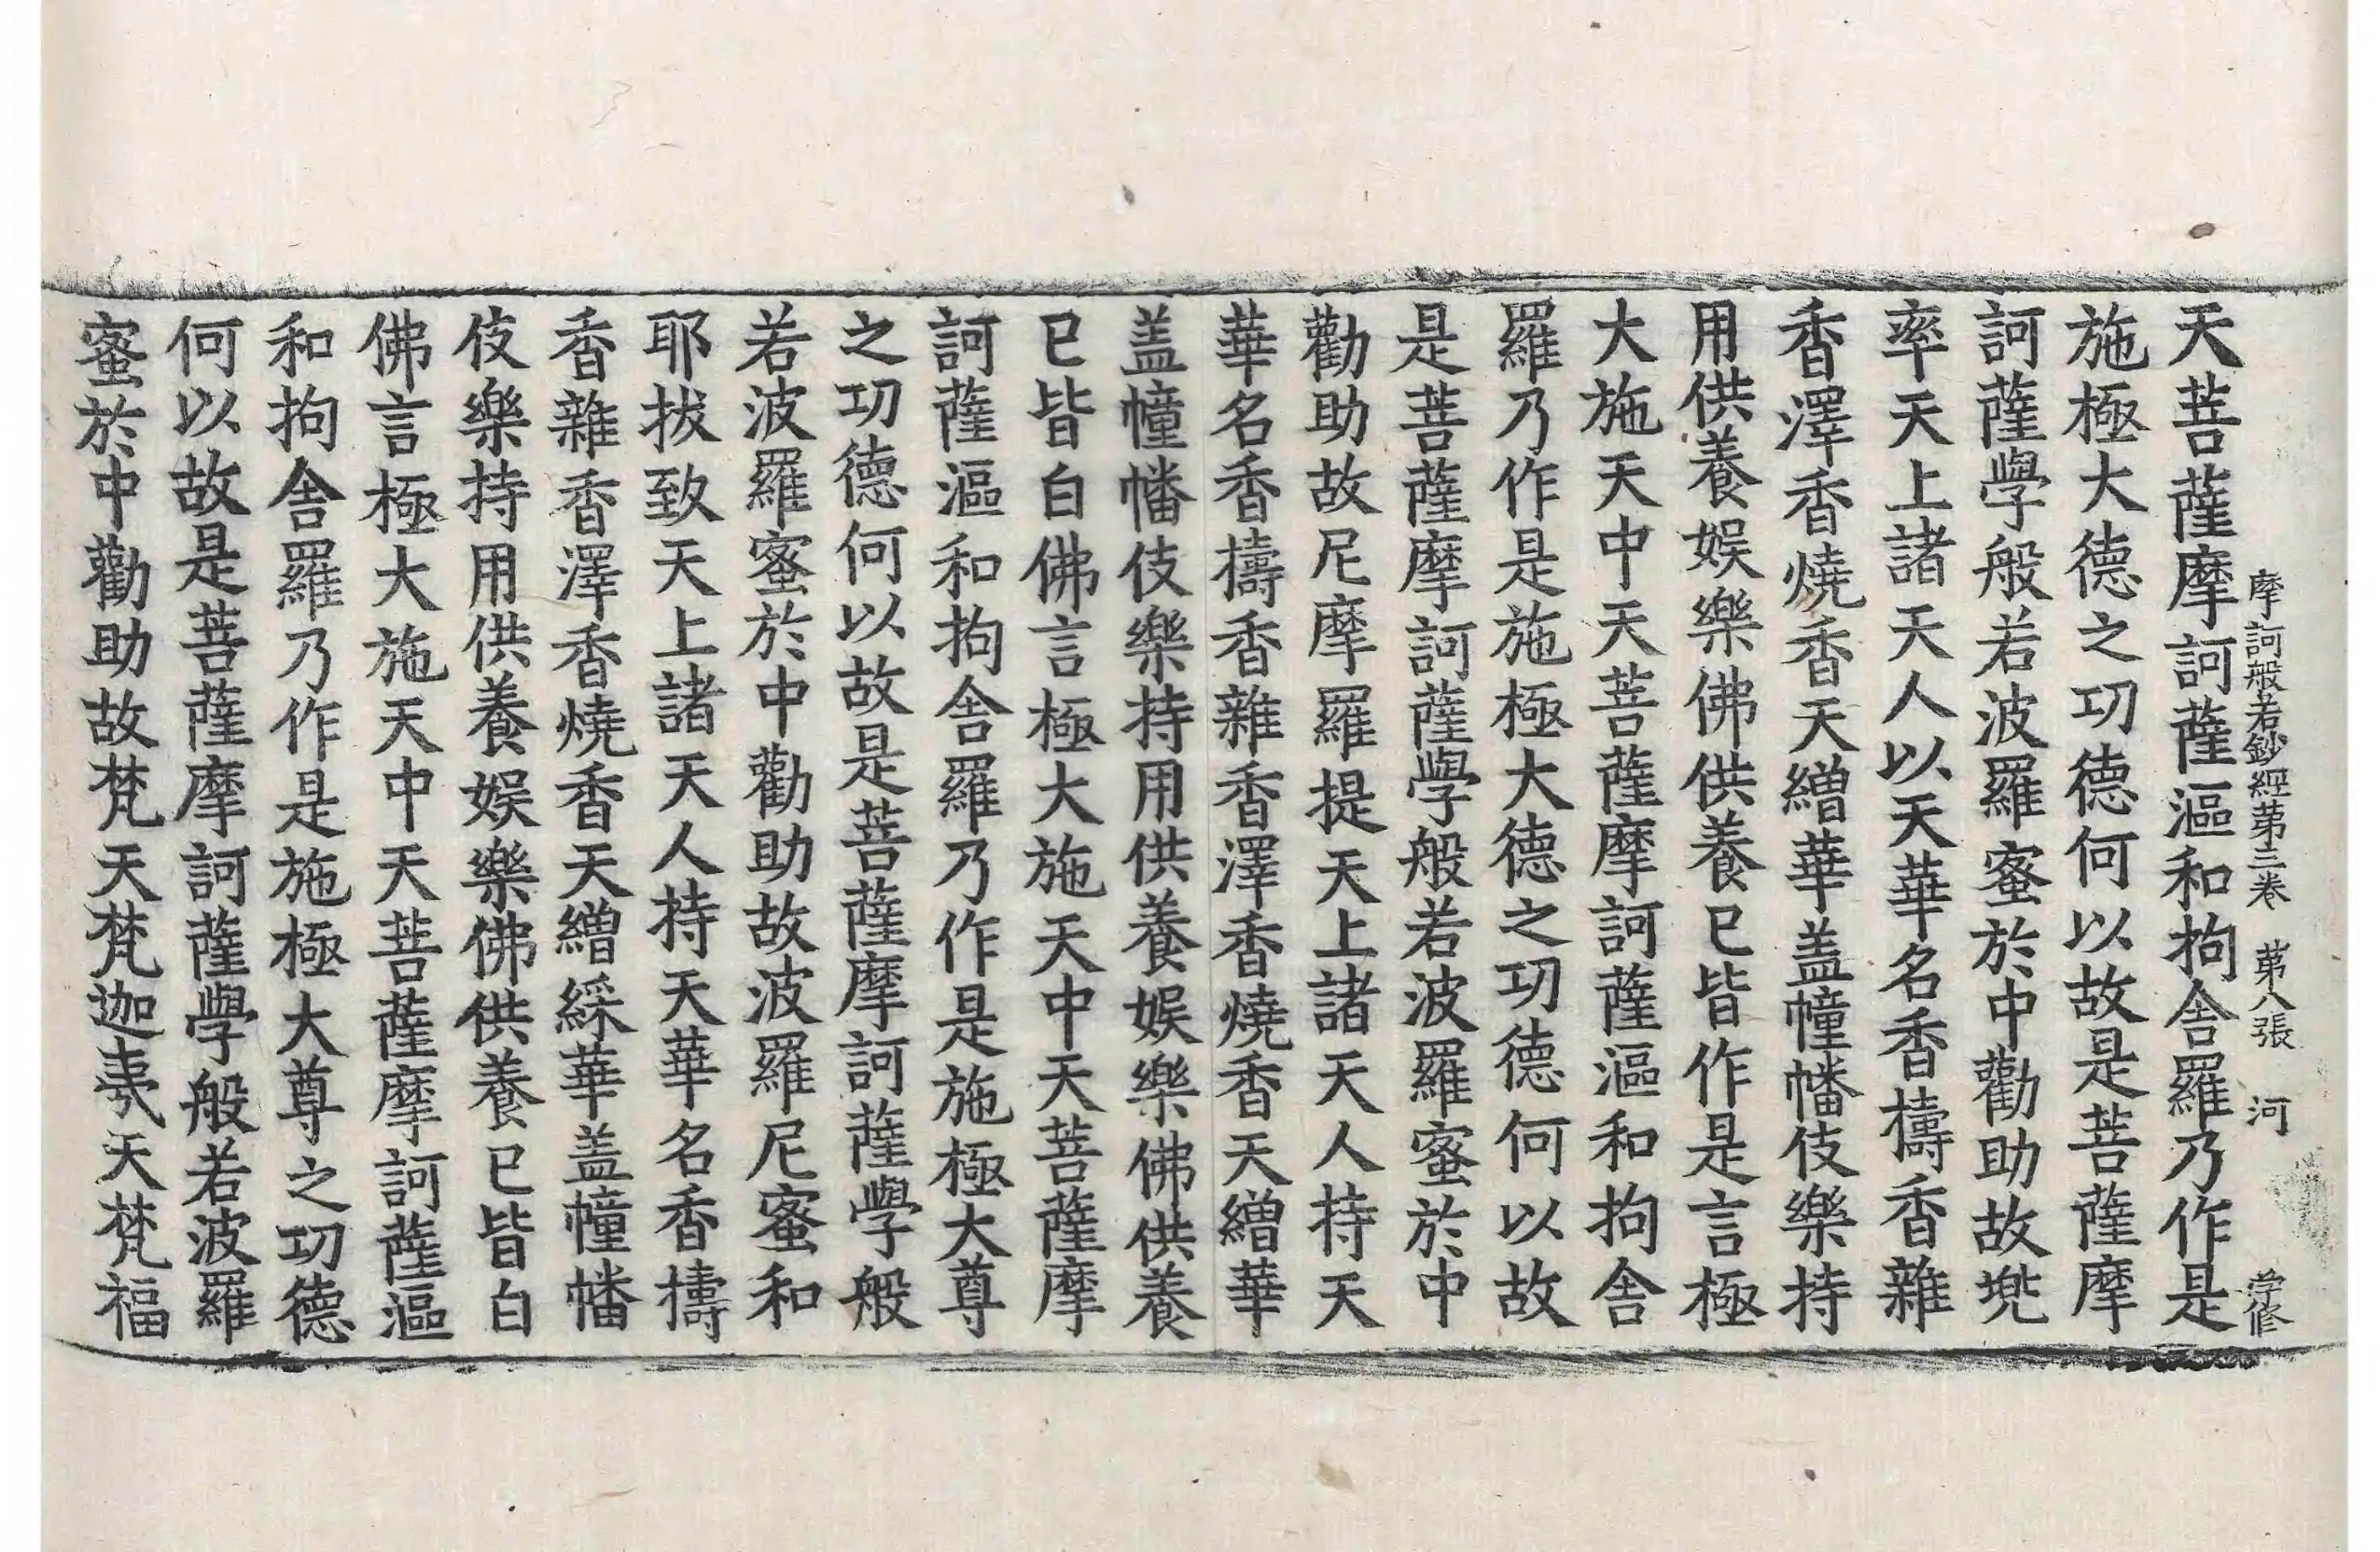 摩訶般若鈔經苐三卷 苐八張 河 学修
天菩薩摩訶薩漚和拘舍羅乃作是
施極大德之功德何以故是菩薩摩
訶薩學般若波羅蜜於中勸助故兠
率天上諸天人以天華名香擣香雜
香澤香燒香天繒華盖幢幡伎樂持
用供養娛樂佛供養已皆作是言極
大施天中天菩薩摩訶薩漚和拘舍
羅乃作是施極大德之功德何以故
是菩薩摩訶薩學般若波羅蜜於中
勸助故尼摩羅提天上諸天人持天
華名香擣香雜香澤香燒香天繒華
盖幢幡伎樂持用供養娛樂佛供養
已皆白佛言極大施天中天菩薩摩
訶薩漚和拘舍羅乃作是施極大尊
之功德何以故是菩薩摩訶薩學般
若波羅蜜於中勸助故波羅尼蜜和
耶拔致天上諸天人持天華名香擣
香雜香澤香燒香天繒綵華盖幢幡
伎樂持用供養娛樂佛供養已皆白
佛言極大施天中天菩薩摩訶薩漚
和拘舍羅乃作是施極大尊之功德
何以故是菩薩摩訶薩學般若波羅
蜜於中勸助故梵天梵迦夷天梵福